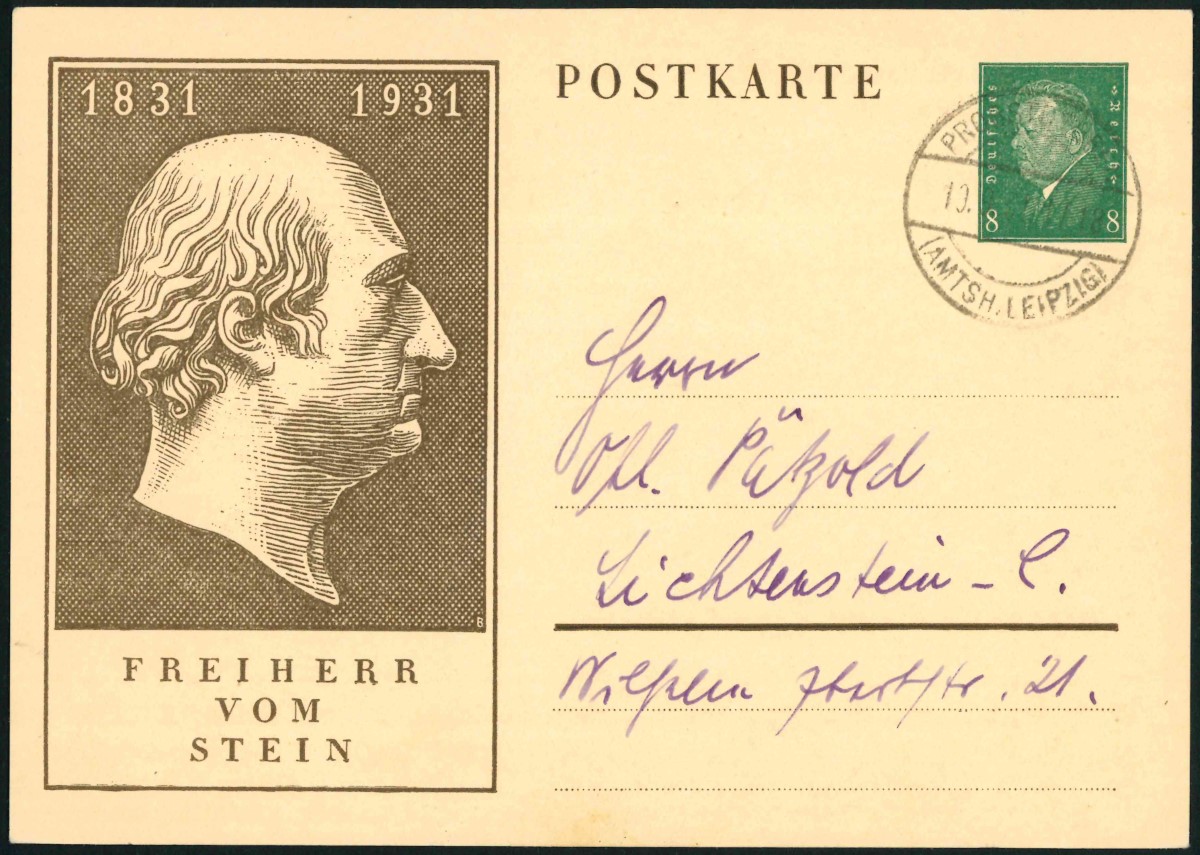 1831 1931
FREIHERR
VOM
STEIN
B
POSTKARTE
Deutsches Reich
8 8
(AMTSH. LEIPZIG)
Herrn
Pätzold
Lichtenstein - C.
Wilhelm 21.